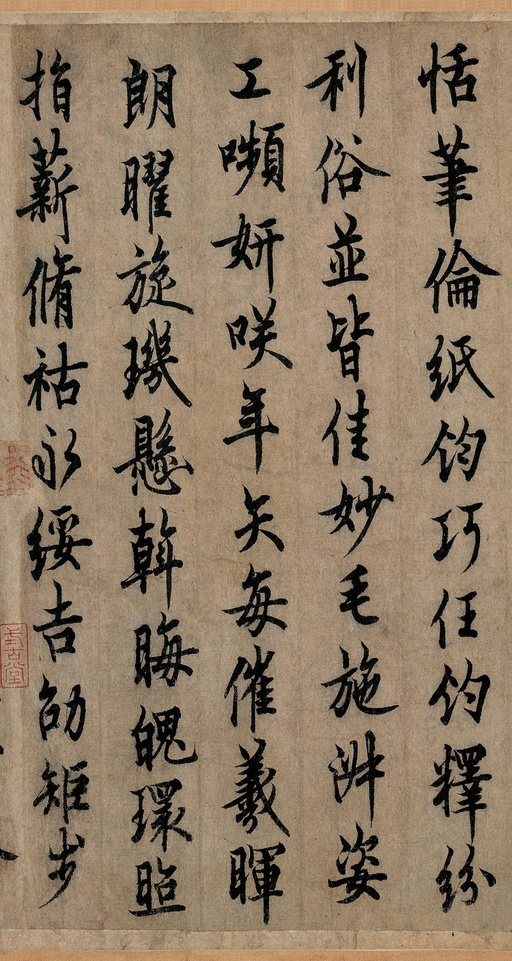 恬筆倫紙鈞巧任釣釋紛
利俗並皆佳妙毛施淑姿
工嚬妍咲年矢每催羲暉
朗曜旋璣懸斡晦魄環照
指薪脩祜永綏吉劭矩步
式古堂